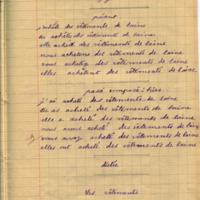 présent
j'achète des vêtements de laine
tu achètes des vêtements de laine
elle achète des vêtements de laine
nous achetons des vêtements de laine
vous achetez des vêtements de laine
elles achètent des vêtements de laine
passé composé
j'ai acheté des vêtements de laine
tu as acheté des vêtements de laine
elle a acheté des vêtements de laine
nous avons acheté des vêtements de laine
vous avez acheté des vêtements de laine
elles ont acheté des vêtements de laine
Dictée
Les vêtements